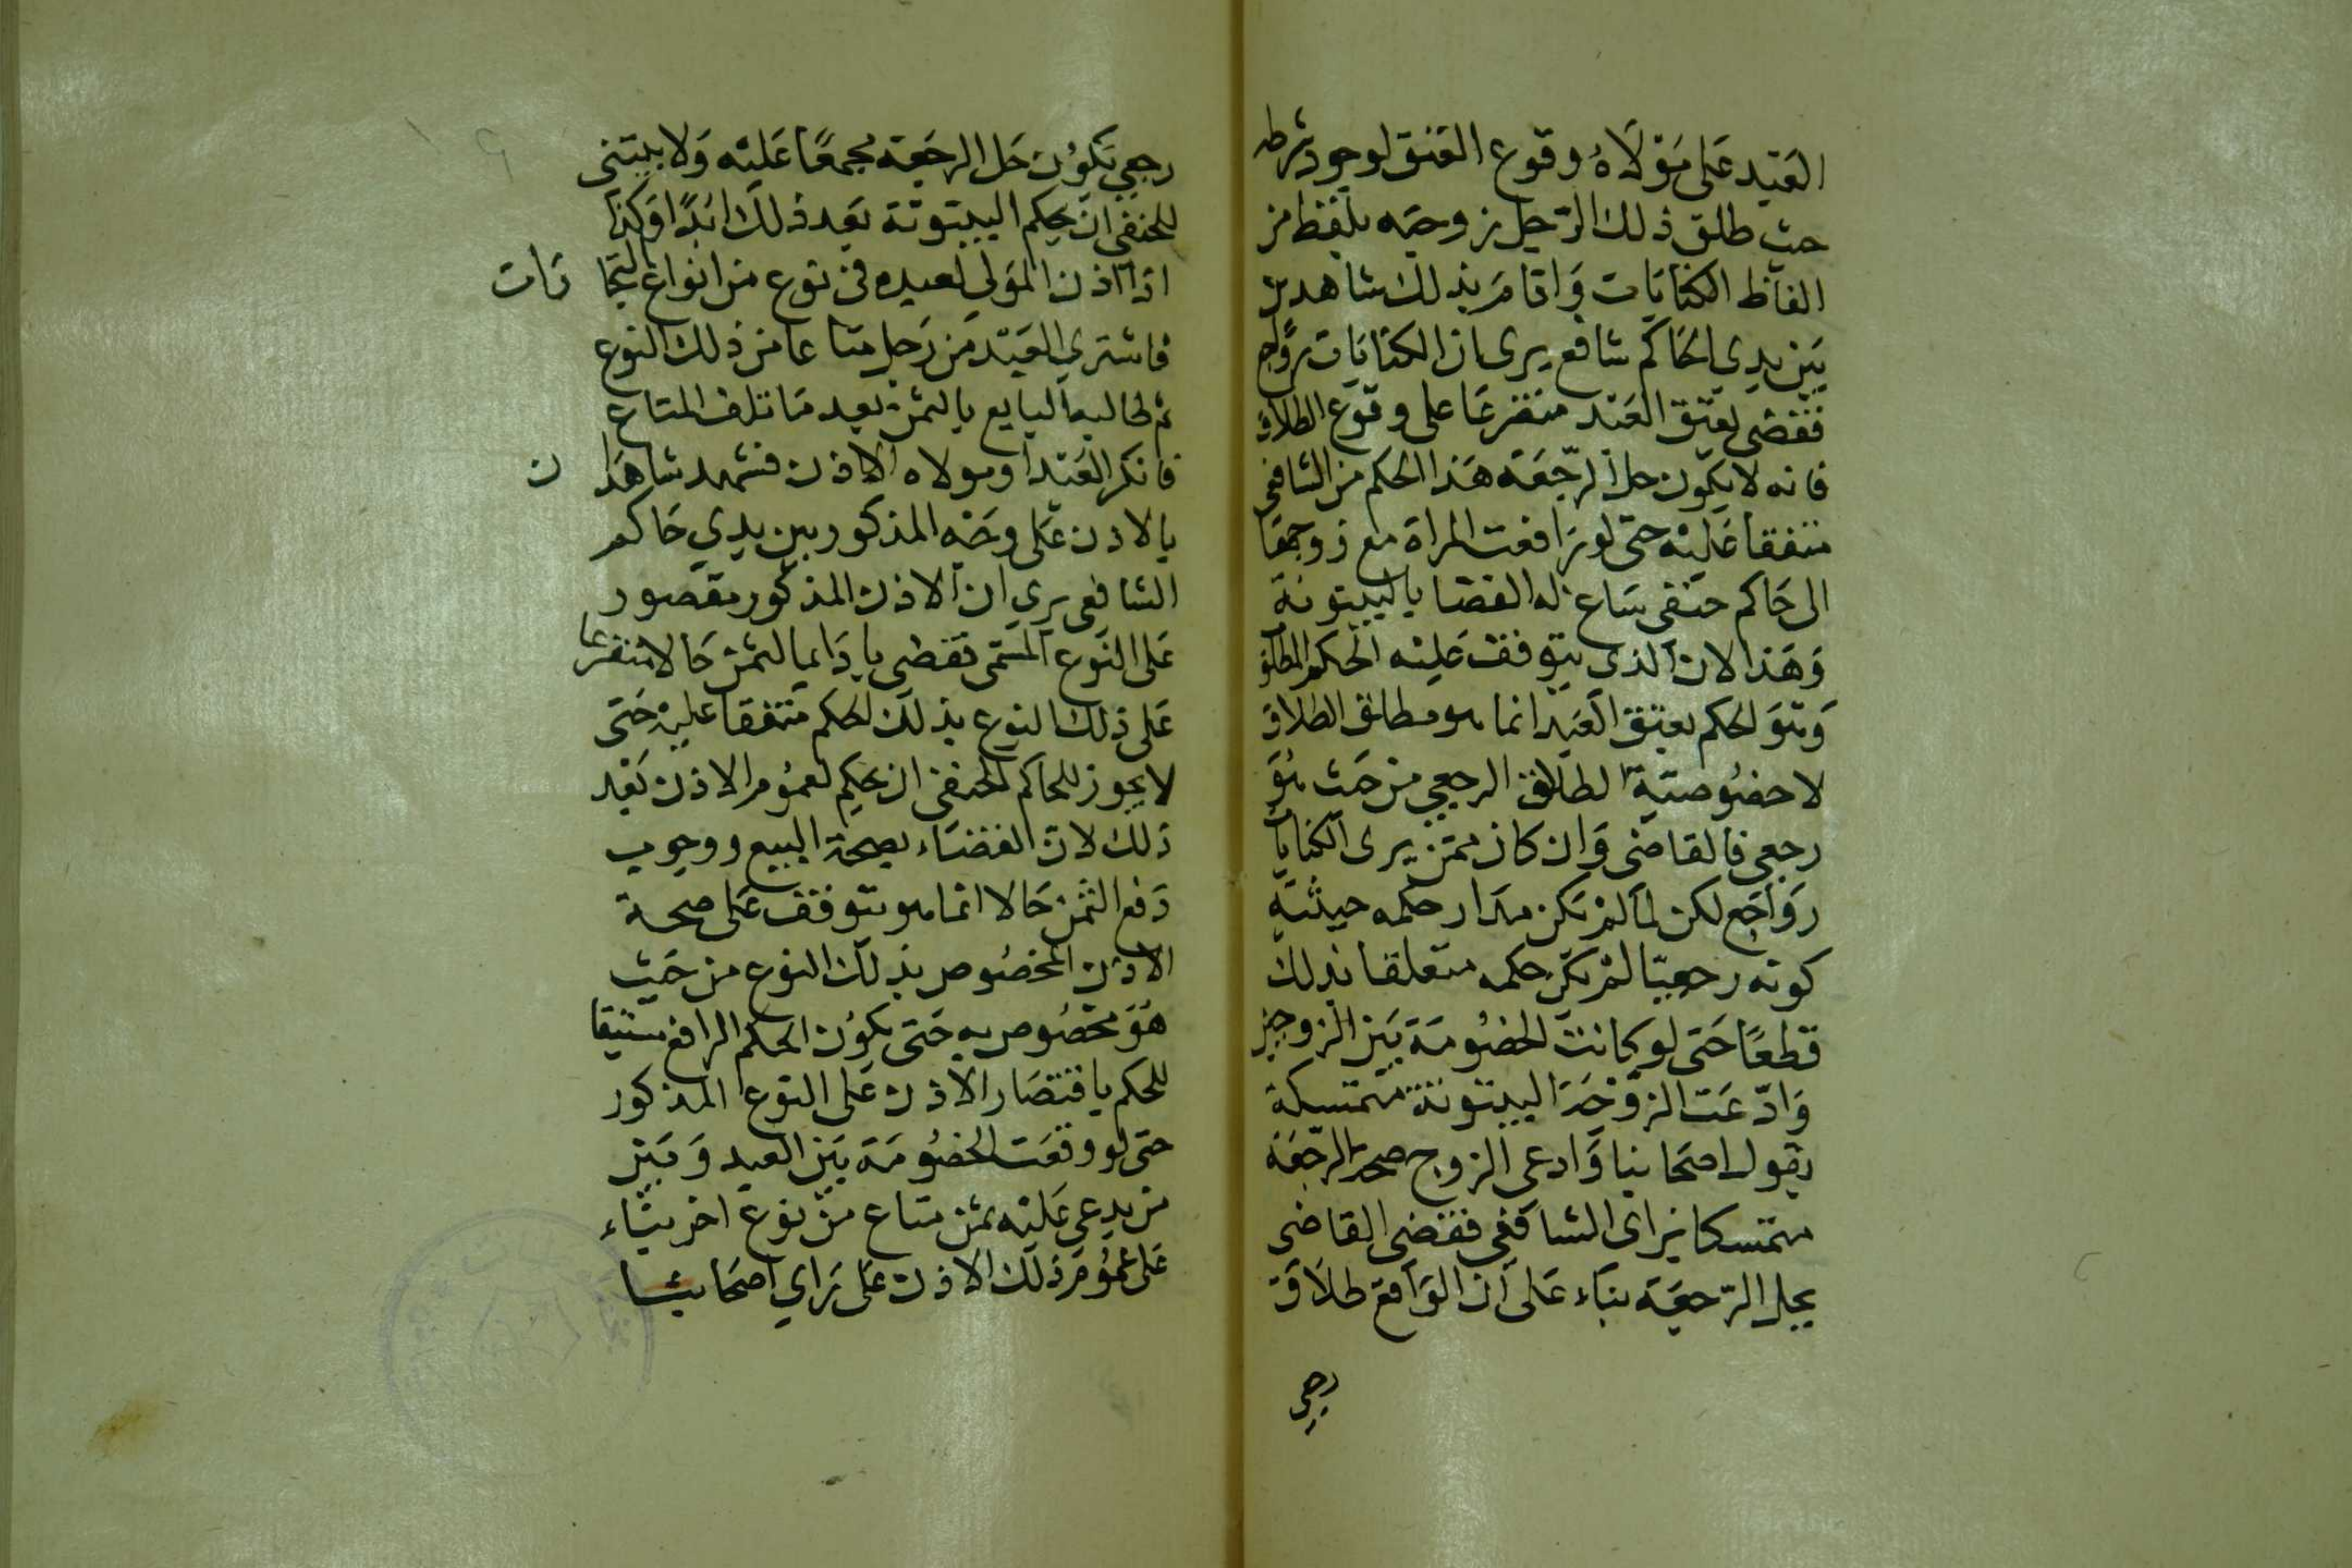 العبد على مولاه وقوع العتق لوجود شرطه
حيث طلق ذلك الرجل زوجته بلفظ من
الفاظ الكنايات واقام بذلك شاهدين
بين يدي الحاكم شافع يرى ان الكنايات رواجع
فقضى بعتق العبد متفرعا على وقوع الطلاق
فانه لا يكون حل الرجعة هذا الحكم من الشافعي
متفقا عليه حتى لو ترافعت المراة مع زوجها
الى حاكم حنفي ساع له القضا بالبينونة
وهذا لان الذي يتوقف عليه الحكم المطلق
وهو الحكم بعتق العبد انما هو مطلق الطلاق
لا خصوصية الطلاق الرجعي من حيث هو
رجعي فالقاضي وان كان ممن يرى الكنايات
رواجع لكن لما لم يكن مدار حكمه حيثية
كونه رجعيا لم يكن حكمه متعلقا بذلك
قطعا حتى لو كانت الخصومة بين الزوجين
وادعت الزوجة البينونة متمسكة
بقول اصحابنا وادعى الزوج صحة الرجعة
متمسكا براى الشافعي فقضى القاضي
بحل الرجعة بناء على ان الواقع طلاق
رجعي
رجعي يكون حل الرجعة مجمعا عليه ولا يبتنى
للحنفي ان يحكم البينونة بعد ذلك ابدا وكذا
اذا اذن المولى لعبده في نوع من انواع التجا رات
فاشترى العبد من رجل متاعا من ذلك النوع
ثم طالبه البايع بالثمن بعد ما تلف المتاع
فانكر العبد او مولاه الاذن فشهد شاهدا ن
بالاذن على وجه المذكور بين يدي حاكم
الشافعي يرى ان الاذن المذكور مقصور
على النوع المسمى فقضى باداء الثمن حالا متفرعا
على ذلك النوع بذلك الحكم متفقا عليه حتى
لا يجوز للحاكم الحنفي ان يحكم لعموم الاذن بعد
ذلك لان القضاء بصحة البيع ووجوب
دفع الثمن حالا انما هو يتوقف على صحة
الاذن المخصوص بذلك النوع من حيث
هو مخصوص به حتى يكون الحكم الرافع مستبقا
للحكم باقتصار الاذن على النوع المذكور
حتى لو وقعت الخصومة بين العبد وبين
من يدعي عليه بثمن متاع من نوع اخر بناء
على عموم ذلك الاذن على راي اصحابنا